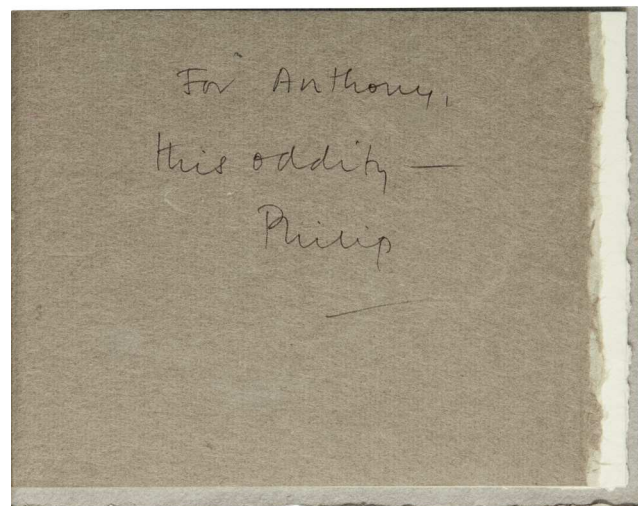 For Anthony,
this oddity —
Philip